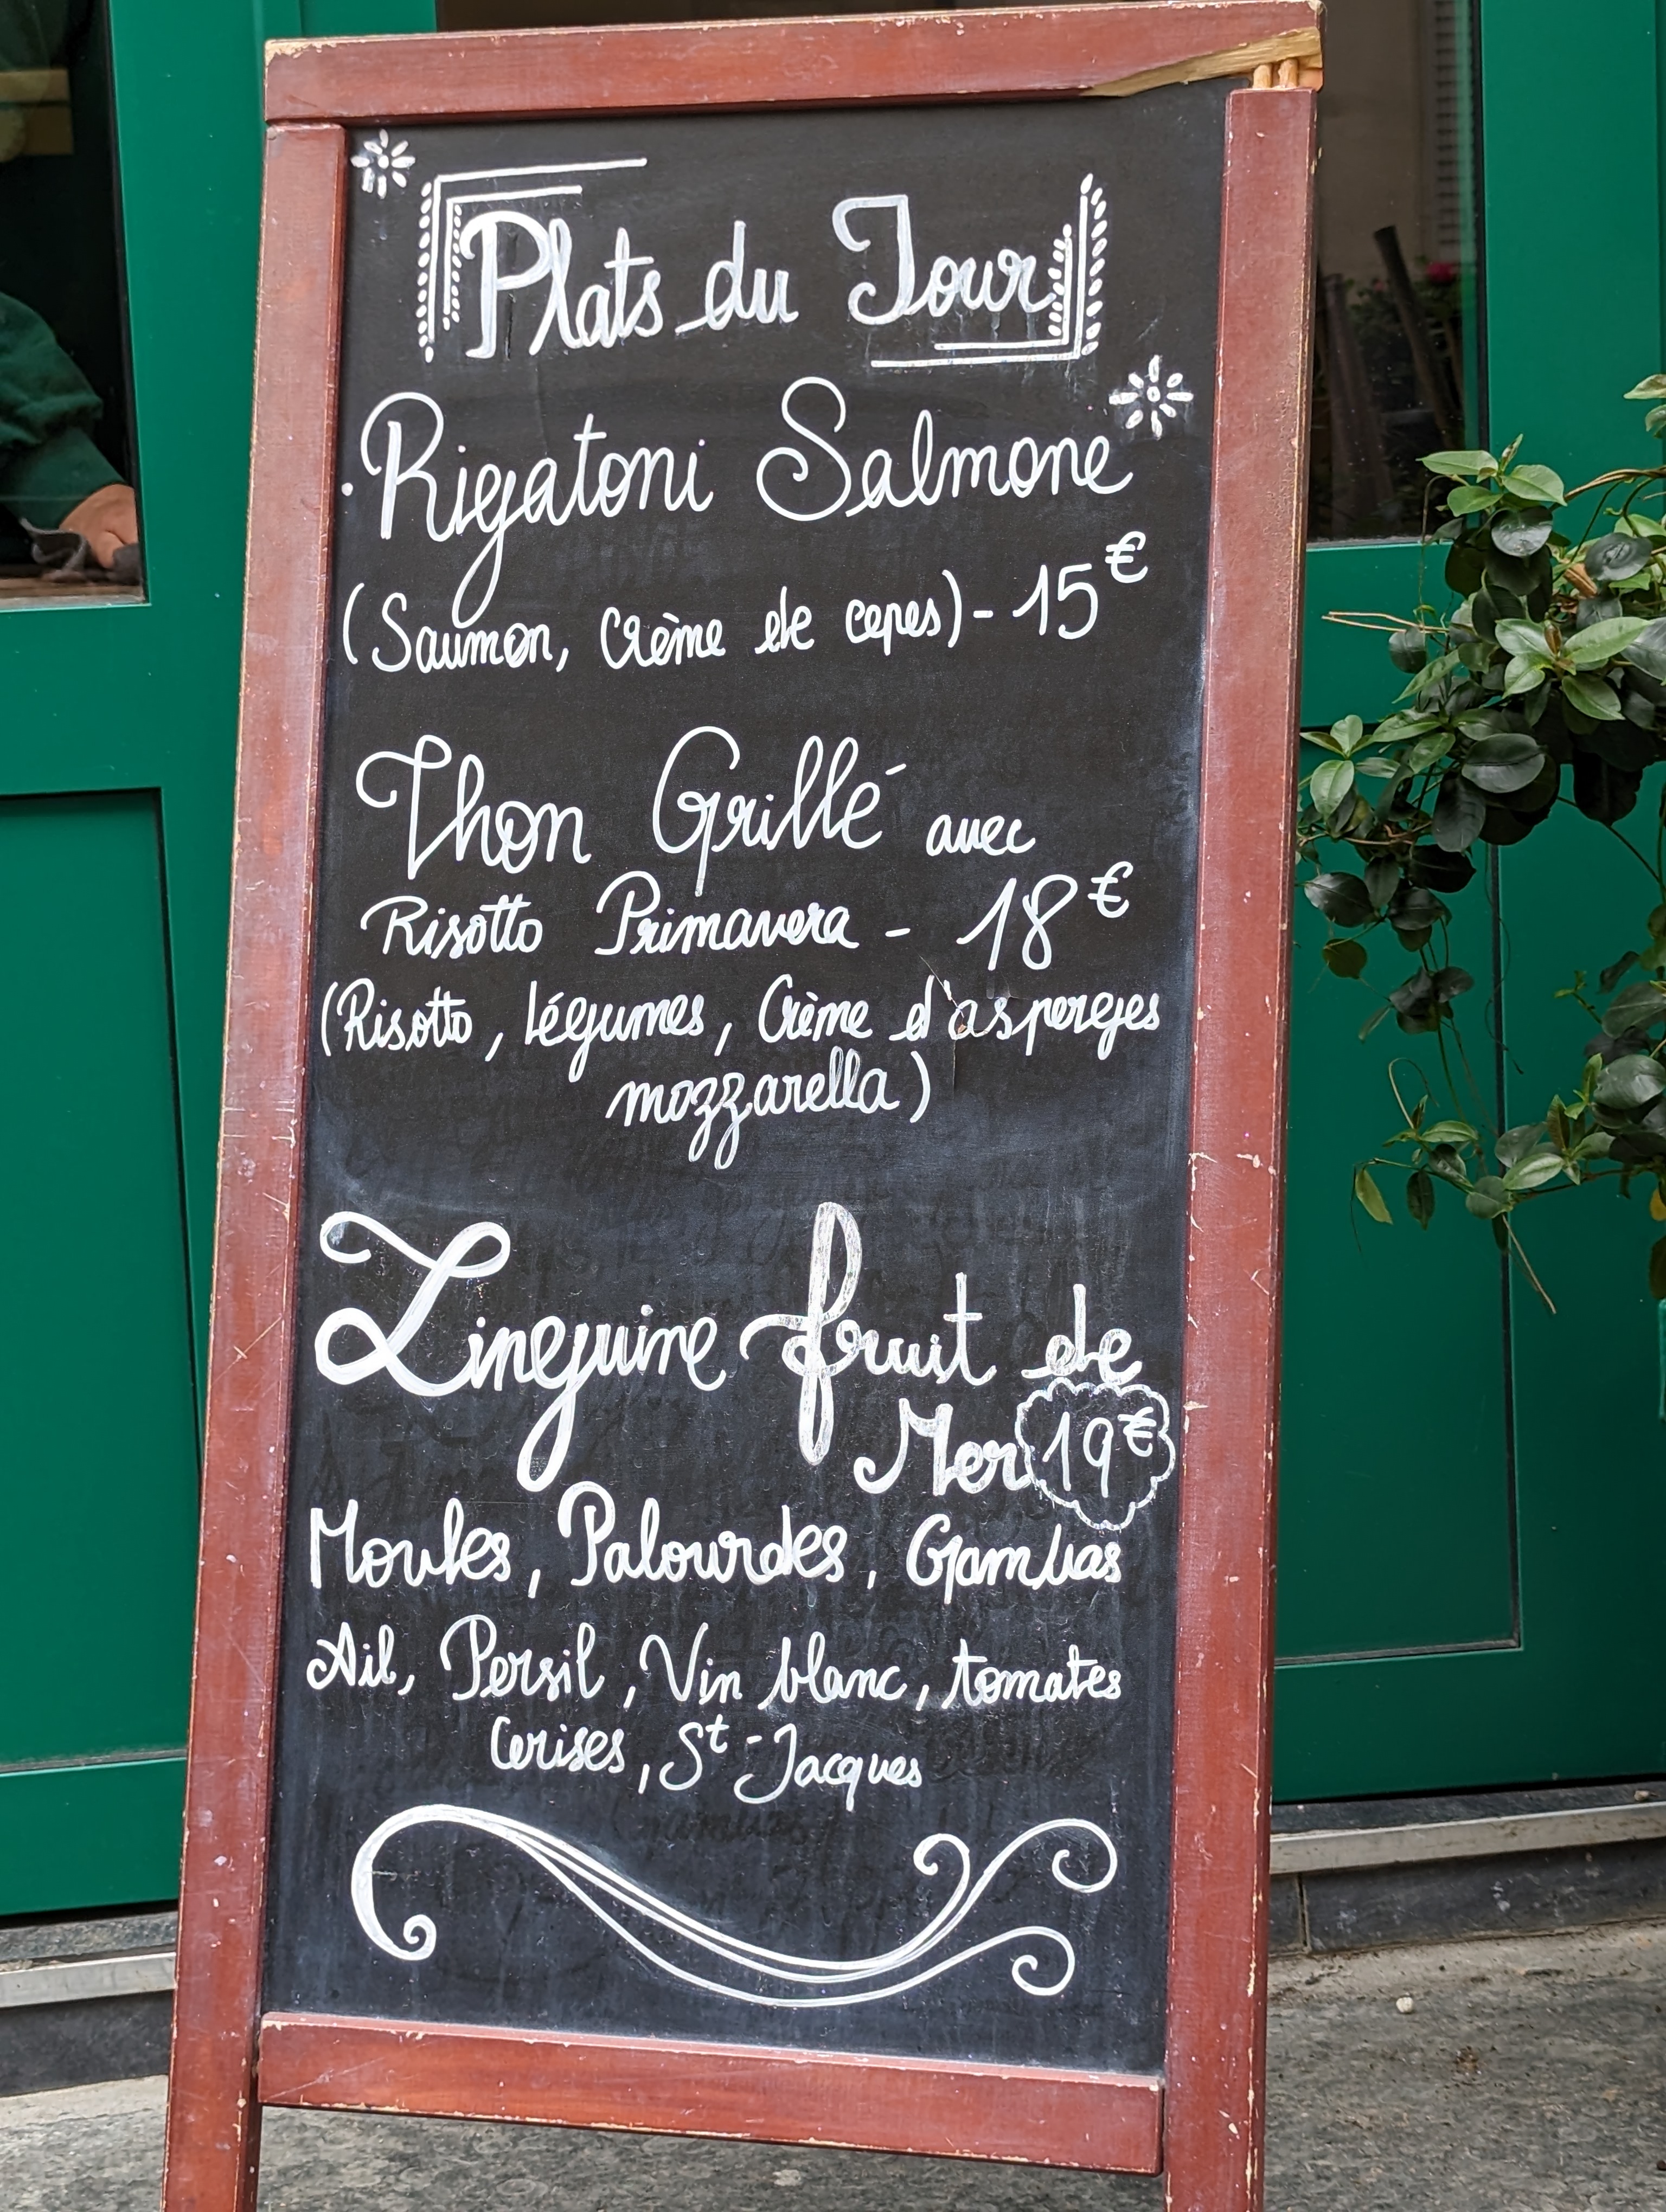 Plats du Jour
. Rigatoni Salmone
(Saumon, Crème de cepes) - 15€
Thon Grillé avec
Risotto Primavera - 18€
(Risotto, légumes, Crème d'asperges
mozzarella)
Linguine fruit de
Mer 19€
Moules, Palourdes, Gambas
Ail, Persil, Vin blanc, tomates
Cerises, St-Jacques